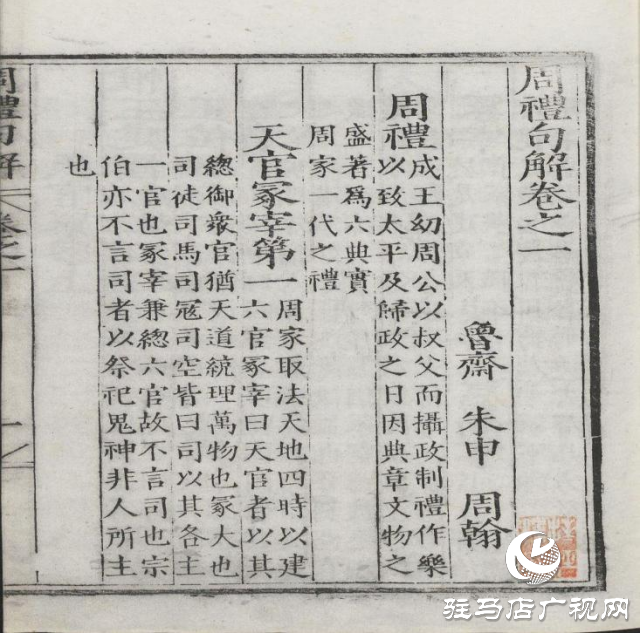 周禮句解卷之一
魯齋 朱申 周翰
周禮 成王幼周公以叔父而攝政制禮作樂
以致太平及歸政之日因典章文物之
盛著爲六典實
周家一代之禮
天官冢宰第一 周家取法天地四時以建
六官冢宰曰天官者以其
總御衆官猶天道統理萬物也冢大也
司徒司馬司冦司空皆曰司以其各主
一官也冢宰兼總六官故不言司也宗
伯亦不言司者以祭祀鬼神非人所主
也
周禮句解 卷之一 一
驻马店广视网